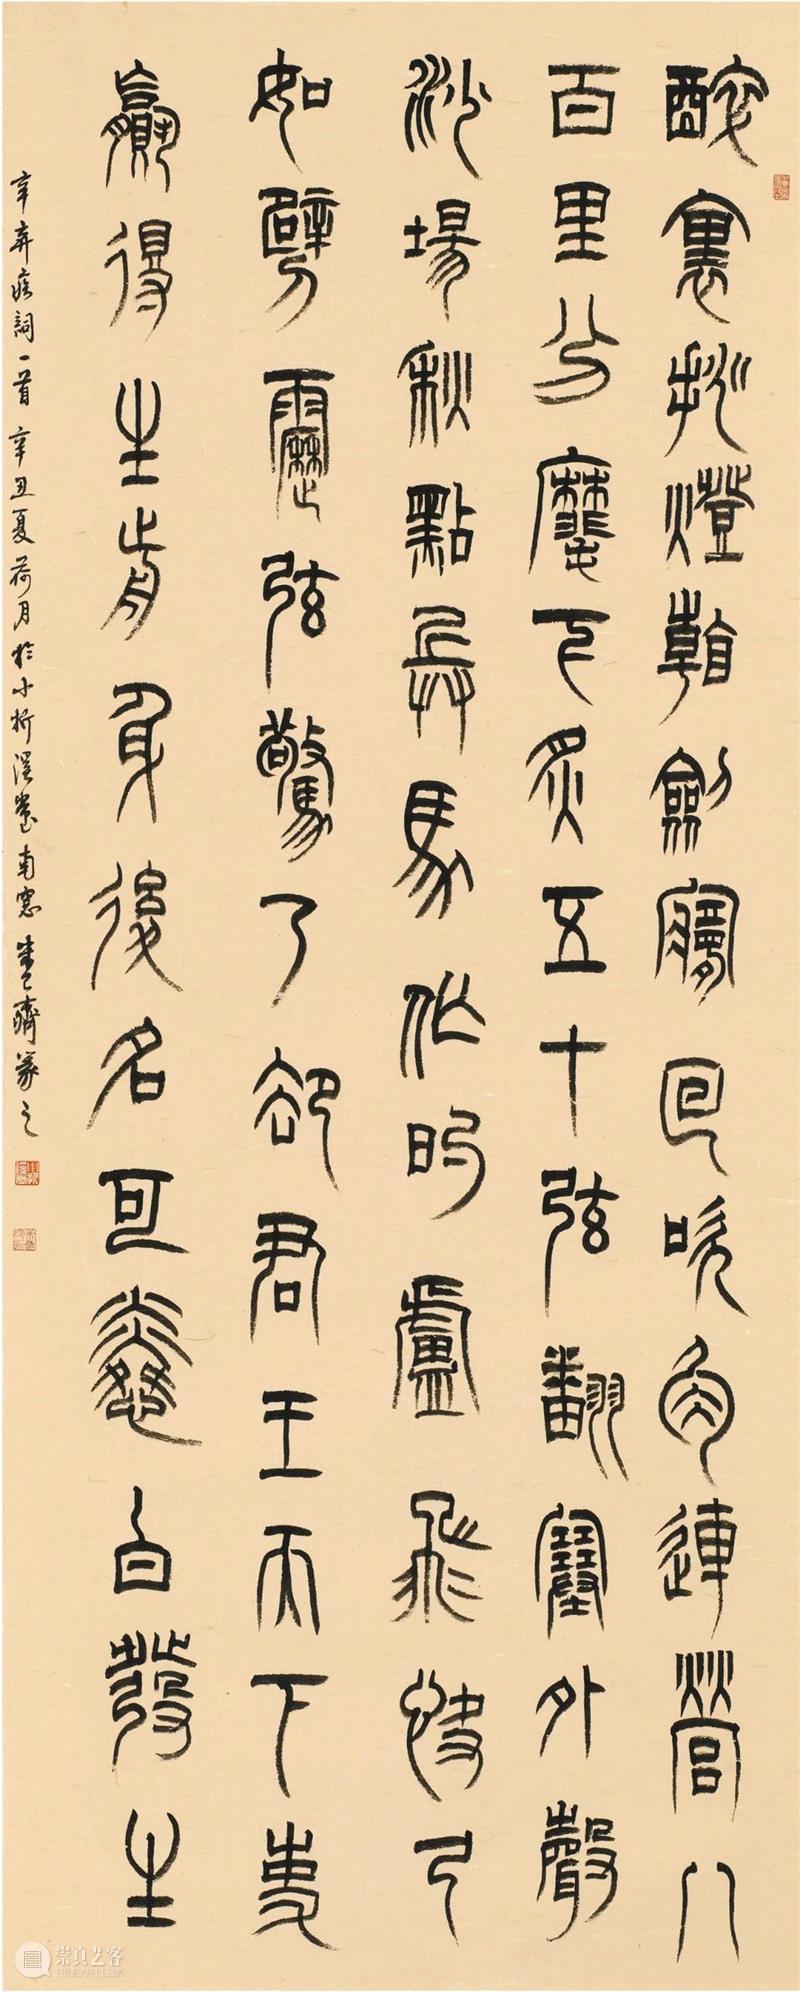 醉裏挑燈看劍夢回吹角連營八
百里分麾下炙五十弦翻塞外聲
沙場秋點兵馬作的盧飛快弓
如霹靂弦驚了卻君王天下事
贏得生前身後名可憐白發生
辛弃疾詞一首 辛丑夏荷月於小 南窓 篆之
崇真艺客
TRUEART.COM